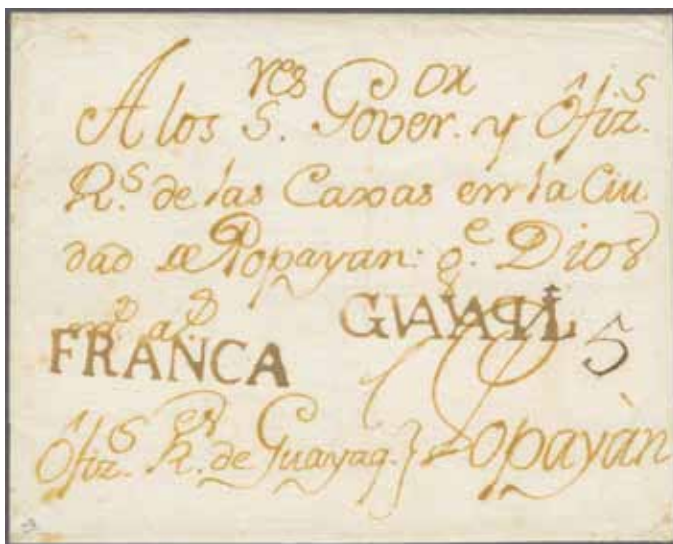 A los S.res Gover.or y Ofiz.s
R.s de las Caxas en la Ciu
dad de Popayan: g.e Dios
m.s a.s
GUAYAQUIL 5
FRANCA
Ofiz.s R.es de Guayaq. } Popayàn